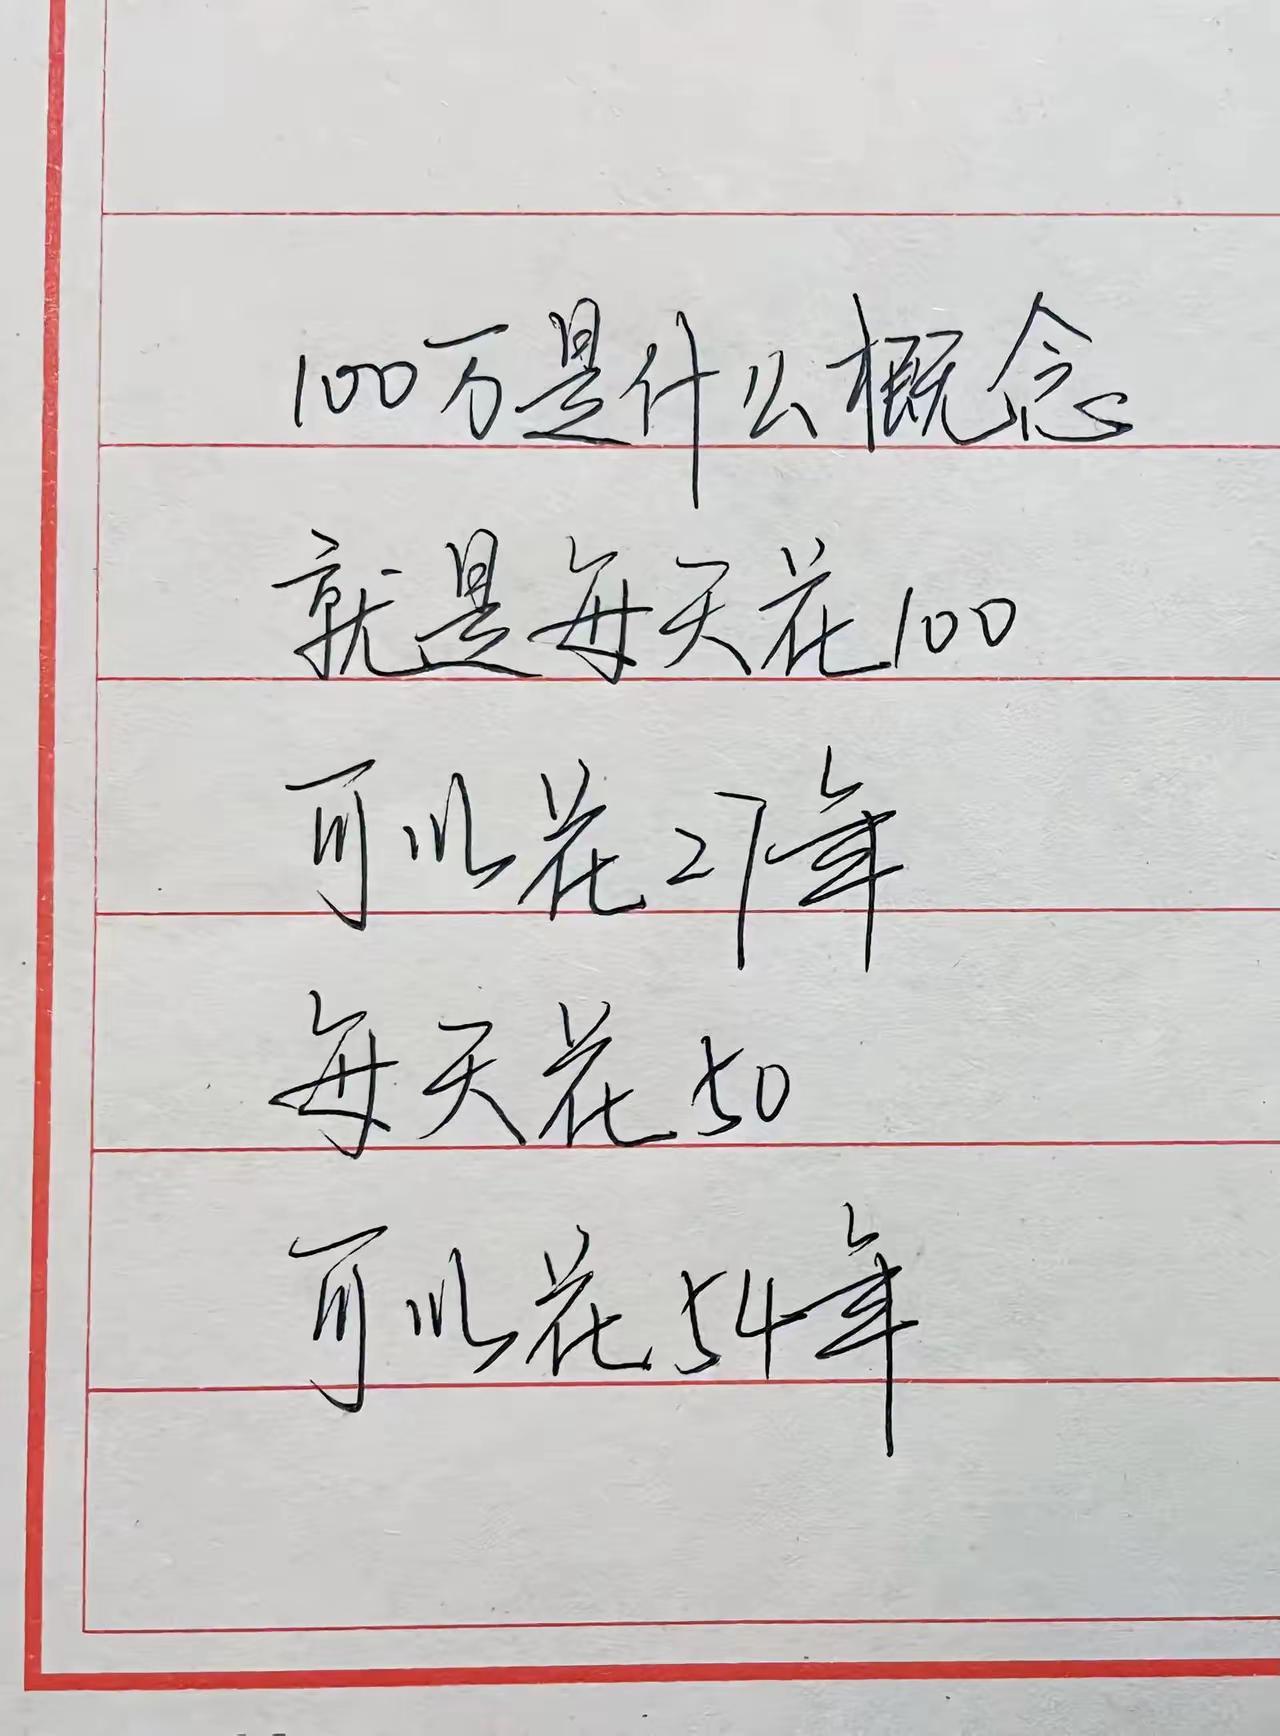 100万是什么概念
就是每天花100
可以花27年
每天花50
可以花54年